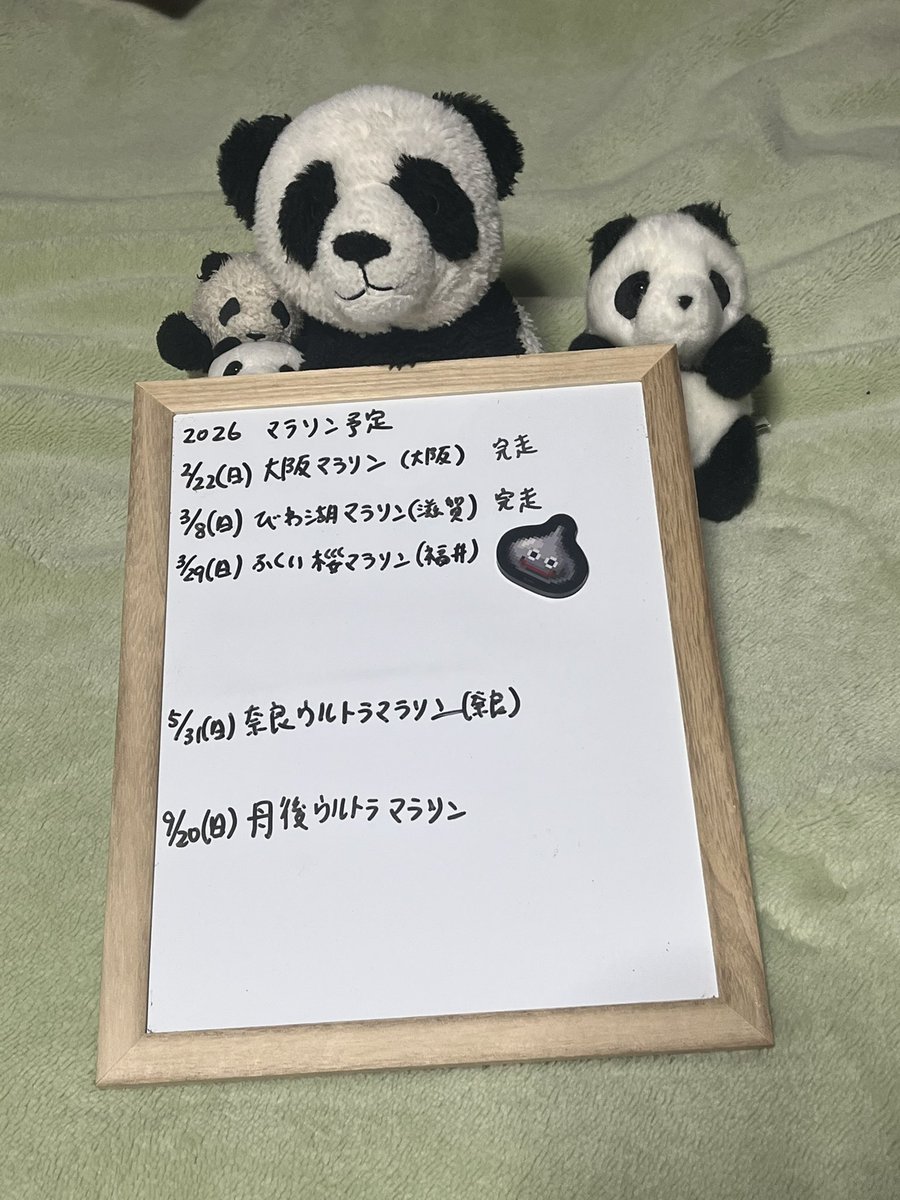 2026 マラソン予定
2/22(日) 大阪マラソン (大阪) 完走
3/8(日) びわ湖マラソン(滋賀) 完走
3/29(日) ふくい桜マラソン(福井)
5/31(日) 奈良ウルトラマラソン(奈良)
9/20(日) 丹後ウルトラマラソン